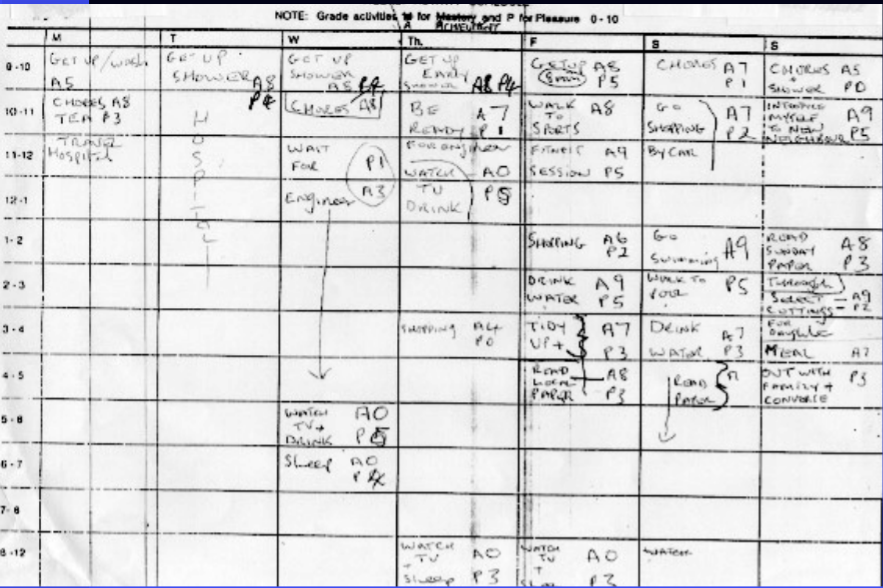 NOTE: Grade activities M for Mastery and P for Pleasure 0 - 10
A ACHIEVEMENT
M T W Th. F S S
9-10
GET UP/wash
A5
GET UP
SHOWER A8
P4
GET UP
SHOWER
A5 P4
GET UP
EARLY
SHOWER A8 P4
GET UP A5
8am P5
CHORES A7
P1
CHORES A5
+
SHOWER P0
10-11
CHORES A8
TEA P3
HOSPITAL
CHORES A8
BE A7
READY P1
FOR engineer
WALK A8
TO
SPORTS
GO A7
SHOPPING P2
BY CAR
INTRODUCE
MYSELF A9
TO NEW P5
NEIGHBOUR
11-12
TRAVEL
Hospital
WAIT
FOR P1
Engineer A3
WATCH A0
TV P5
DRINK
FITNESS A9
SESSION P5
12-1
1-2
SHOPPING A6
P2
GO
SWIMMING A9
READ A8
SUNDAY
PAPER P3
2-3
DRINK A9
WATER P5
WALK TO P5
POOL
THROUGH
SELECT A9
CUTTINGS P2
FOR
3-4
SHOPPING A4
P0
TIDY A7
UP + P3
DRINK A7
WATER P3
MEAL A7
4-5
READ A8
LOCAL
PAPER P3
READ
PAPER
OUT WITH P3
FAMILY +
CONVERSE
5-6
WATCH A0
TV +
DRINK P5
6-7
Sleep A0
P4
7-8
8-12
WATCH A0
TV
+
Sleep P3
WATCH A0
TV
+
WATCH